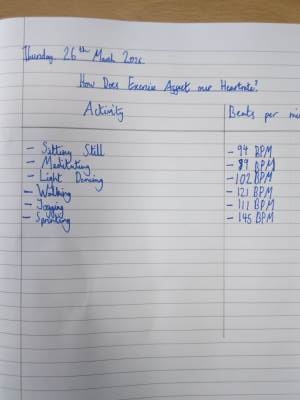 Thursday 26th March 2026
How Does Exercise Affect our Heartrate?
Activity Beats per
- Sitting Still - 94 BPM
- Meditating - 89 BPM
- Light Dancing - 102 BPM
- Walking - 121 BPM
- Jogging - 111 BPM
- Sprinting - 145 BPM